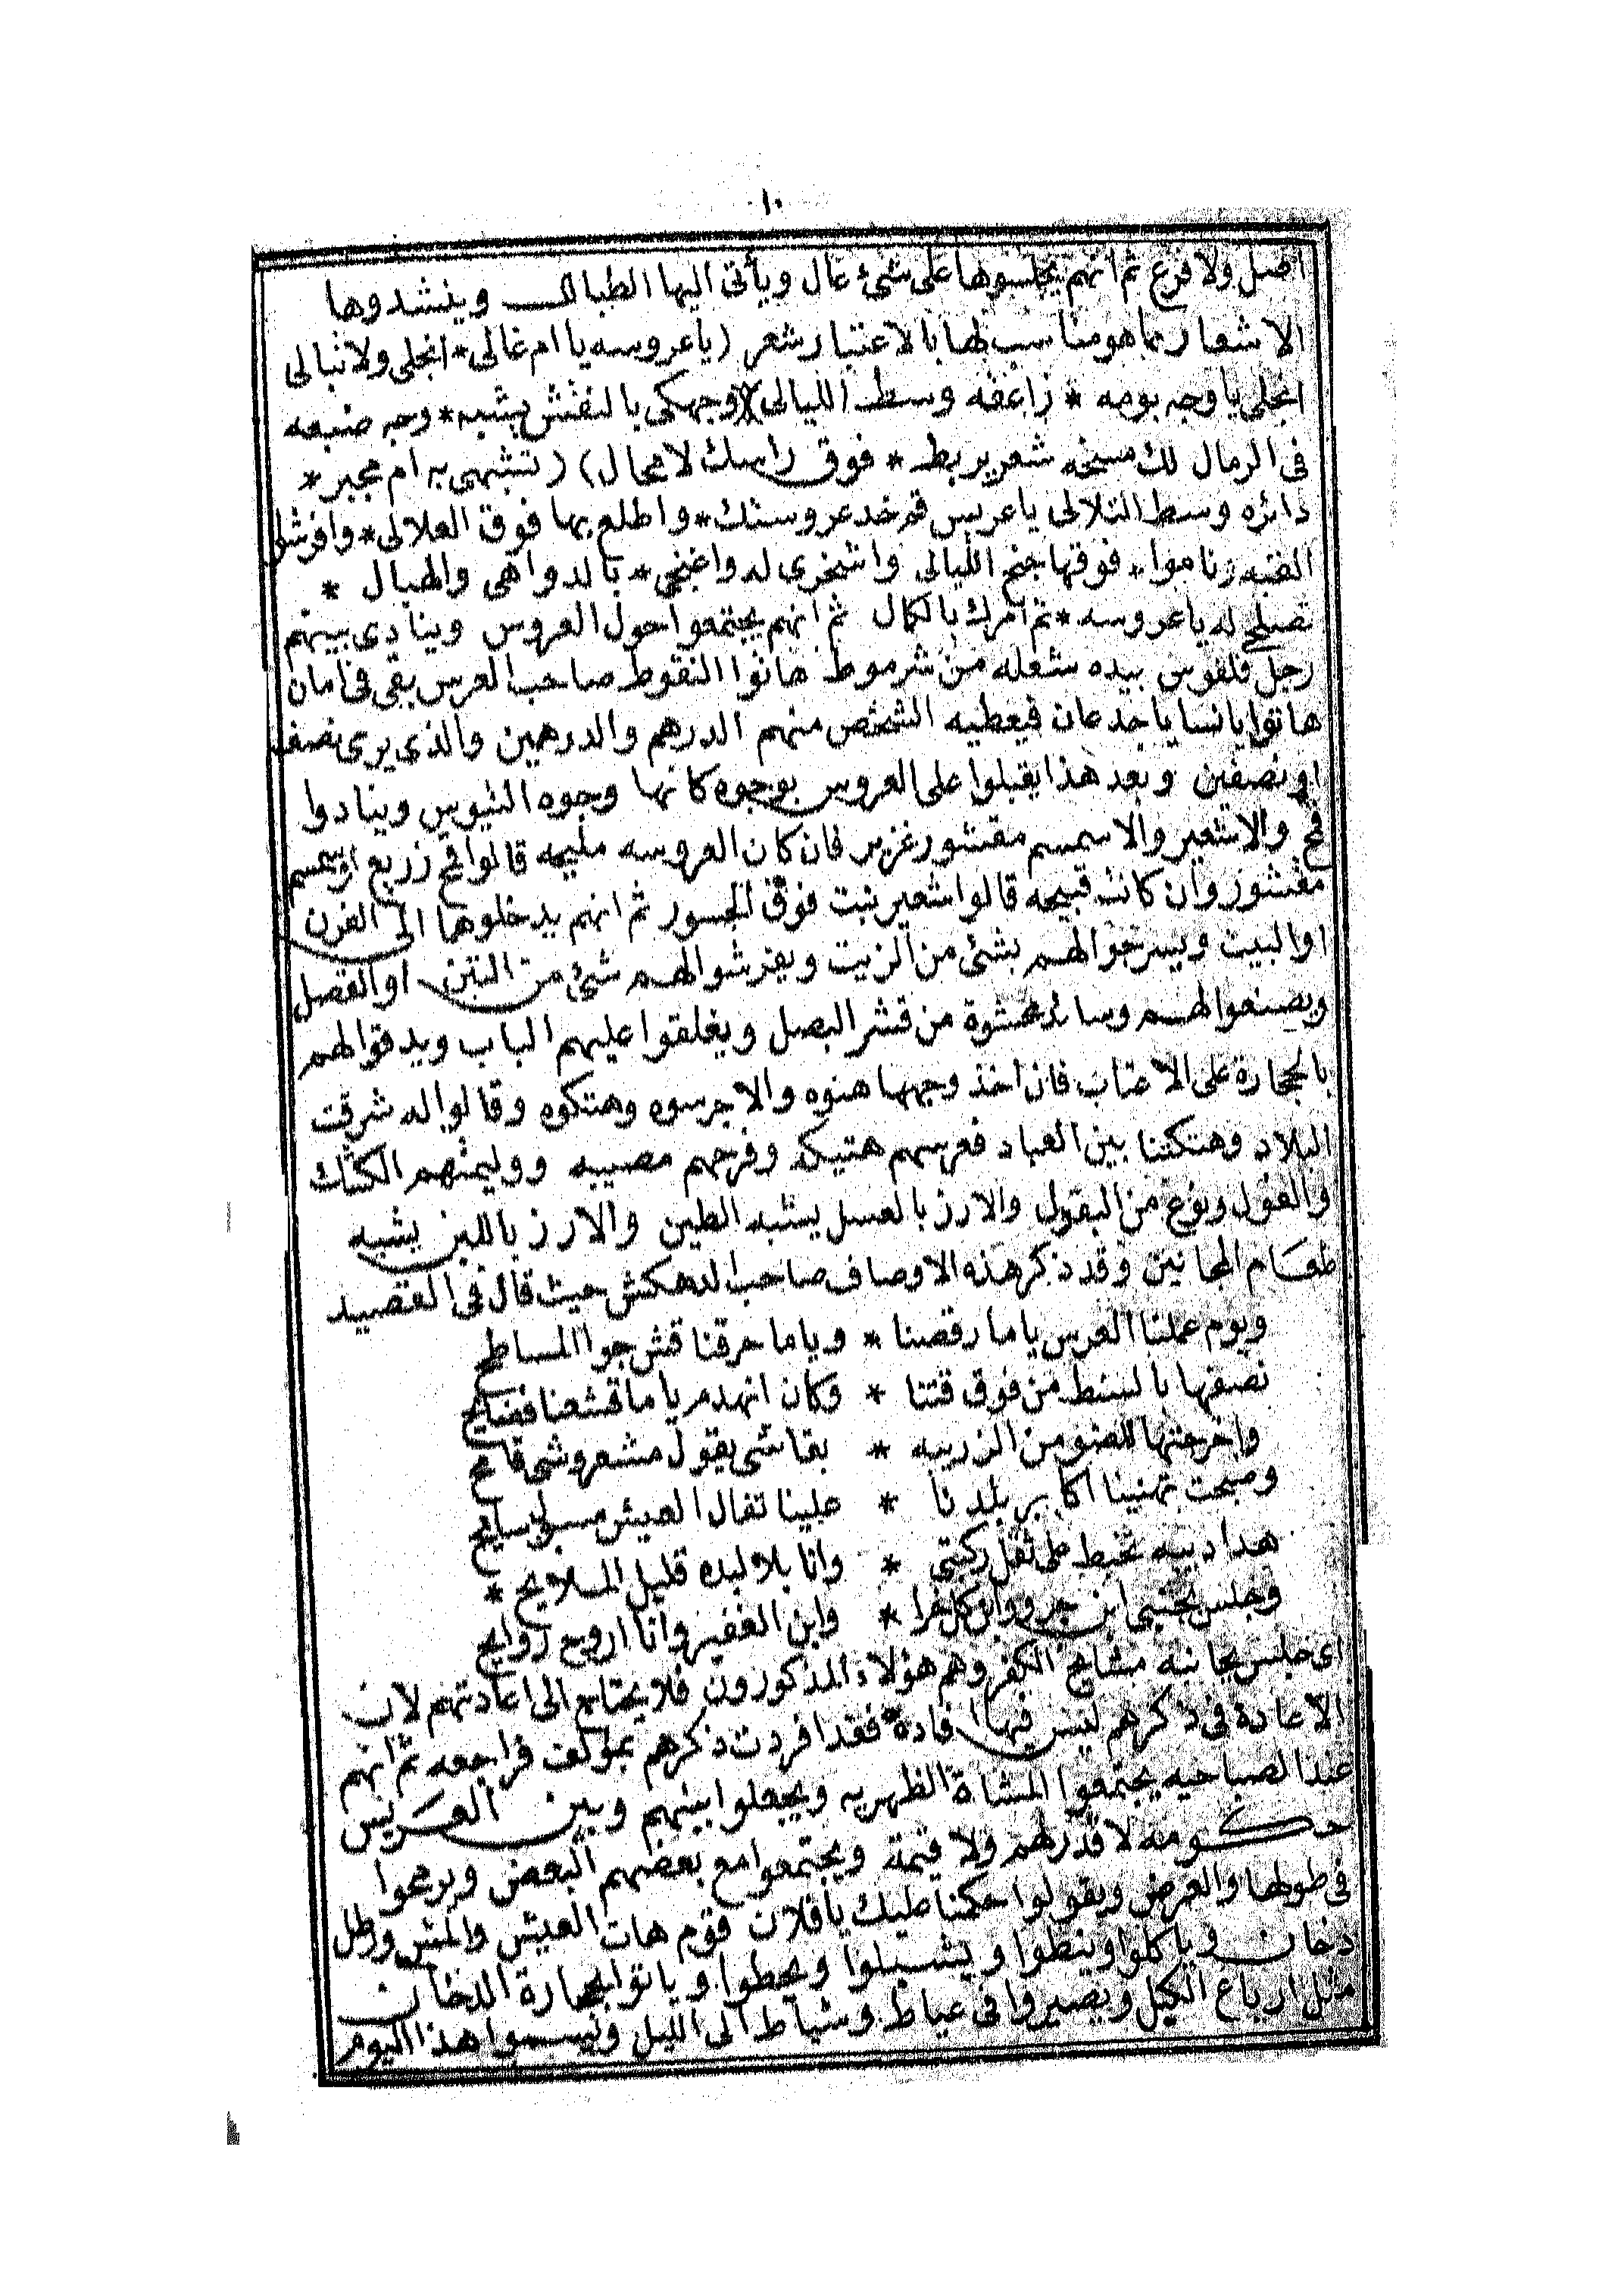 ١٠
اصل ولا فرع ثم انهم يجلسوها على شئ عال ويأتى اليها الطبال وينشدوها
الاشعار مما هو مناسب لها بالاعتبار شعر (يا عروسه يا ام غالى * انجلى ولا تبالى
انجلى يا وجه بومه * زاعقه وسط الليالى) (وجهكى بالنقش يشبه * وجه ضبعه
فى الرمال لك مسخه شعر يربط * فوق راسك لا محال) (تشبهى يه ام مجبر *
دائره وسط التلالى يا عريس قم خد عروستك * واطلع بها فوق العلالى * وافرشلك
القبه وناموا * فوقها جنح الليالى واشخرى له واغنجى * بالدواهى والهبال *
تصلحى له يا عروسه * تم امرك بالكمال ثم انهم يجتمعوا حول العروس وينادى بينهم
رجل قلفوس بيده شعله من شرموط هاتوا النقوط صاحب العرس بقى فى امان
هاتوا يا نسا يا جدعان فيعطيه الشخص منهم الدرهم والدرهمين والذى يرى نصف
او نصفين وبعد هذا يقبلوا على العروس بوجوه كانها وجوه التيوس وينادوا
قمح والا شعير والا سمسم مقشور غزير فان كان العروسه مليحه قالوا قمح زريع او سمسم
مقشور وان كانت قبيحه قالوا شعير نبت فوق الجسور ثم انهم يدخلوها الى الفرن
او البيت ويسرجوا لهم بشئ من الزيت ويفرشوا لهم شئ من التبن او القصل
ويصنعوا لهم وسائد محشوة من قشر البصل ويغلقوا عليهم الباب ويدقوا لهم
بالحجارة على الاعتاب فان اخذ وجهها هنوه والا جرسوه وهتكوه وقالوا له شرقت
البلاد وهتكتنا بين العباد فعرسهم هتيكه وفرحهم مصيبه ووليمتهم الكشك
والفول ونوع من البقول والارز بالعسل يشبه الطين والارز باللبن يشبه
طعام المجانين وقد ذكر هذه الاوصاف صاحب الدهكش حيث قال فى القصيد
ويوم عملنا العرس ياما رقصنا * وياما حرقنا قش جوا المساطح
نصفها بالسنط من فوق قتنا * وكان انهدم ياما قشعنا فضايح
واخرجتها للضو من الزريبه * بقا شى يقول مشعر وشى قامح
وصبحت تهنينا اكابر بلدنا * علينا تقال العيش مسلى سايح
هدا دبيه تحبط على ثقل ركبتى * وانا بلا لبده قليل الملايح *
وجلس بجنبى ابن جرو وابن كل خرا * وابن الفقير وانا اروح روايح
اى جلس بجانبه مشايخ الكفر وهم هؤلاء المذكورون فلا يحتاج الى اعادتهم لان
الاعادة فى ذكرهم ليس فيها افادة فقد افردت ذكرهم بمؤلف فراجعه ثم انهم
عند الصباحيه يجتمعوا المشاة الظهريه ويجعلوا بينهم وبين العريس
حكومه لا قدر لهم ولا قيمة ويجتمعوا مع بعضهم البعض ويرمحوا
فى طولها والعرض ويقولوا حكمنا عليك يا فلان قوم هات العيش والمش ورطل
دخان وياكلوا وينطوا ويشيلوا ويحطوا وياتوا بحجارة الدخان
مثل ارباع الكيل ويصيروا فى عياط وشياط الى الليل ويسموا هذا اليوم